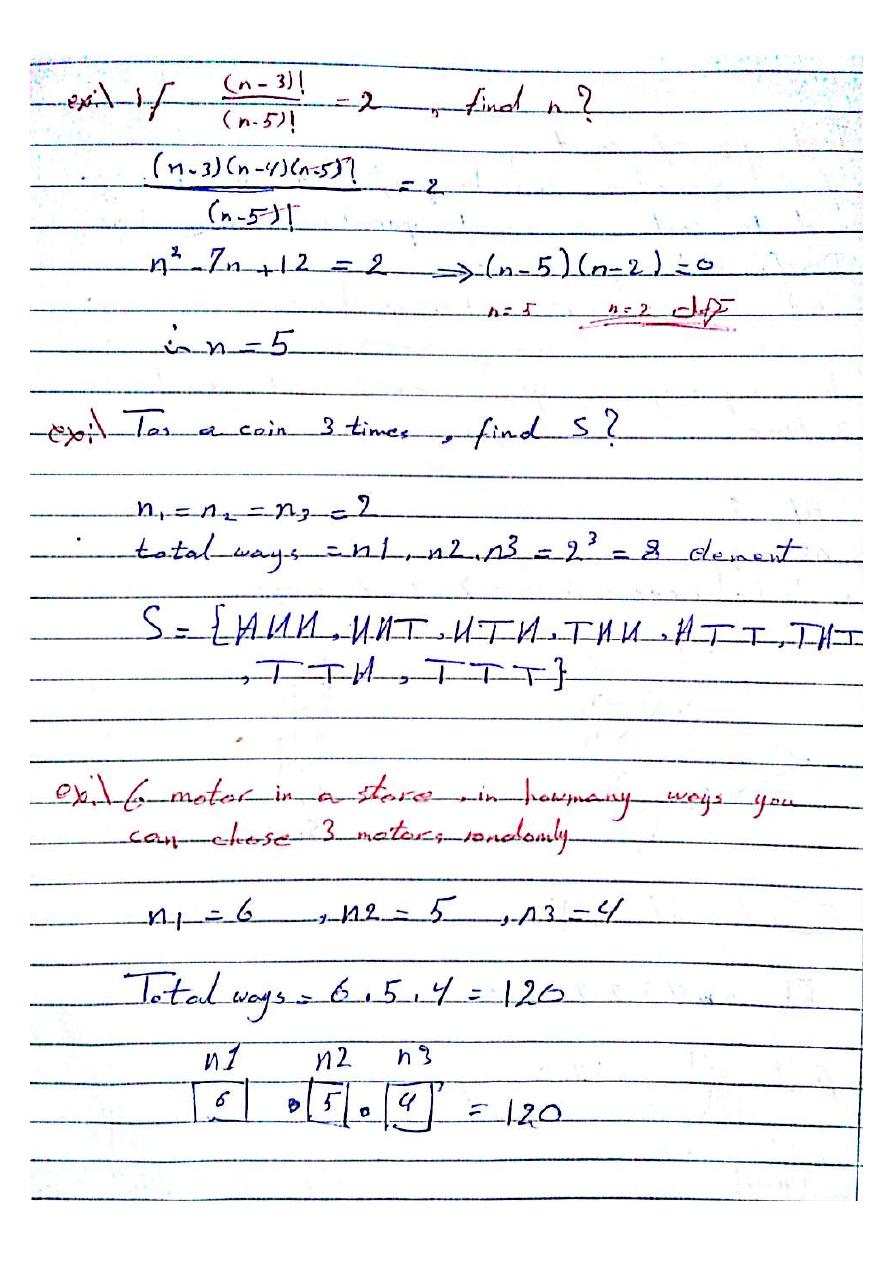 ex:\ if (n-3)! / (n-5)! = 2 , find n?
(n-3)(n-4)(n-5)! / (n-5)! = 2
n² - 7n + 12 = 2 ⇒ (n-5)(n-2) = 0
n = 5 n = 2
n = 5
ex:\ Tos a coin 3 times , find S?
n₁ = n₂ = n₃ = 2
total ways = n1 . n2 . n3 = 2³ = 8 element
S = {HHH, HHT, HTH, THH, HTT, THT
, TTH, TTT}
ex:\ 6 motor in a store , in howmany ways you
can chose 3 motors randomly
n₁ = 6 , n2 = 5 , n3 = 4
Total ways = 6 . 5 . 4 = 120
n1 n2 n3
6 . 5 . 4 = 120